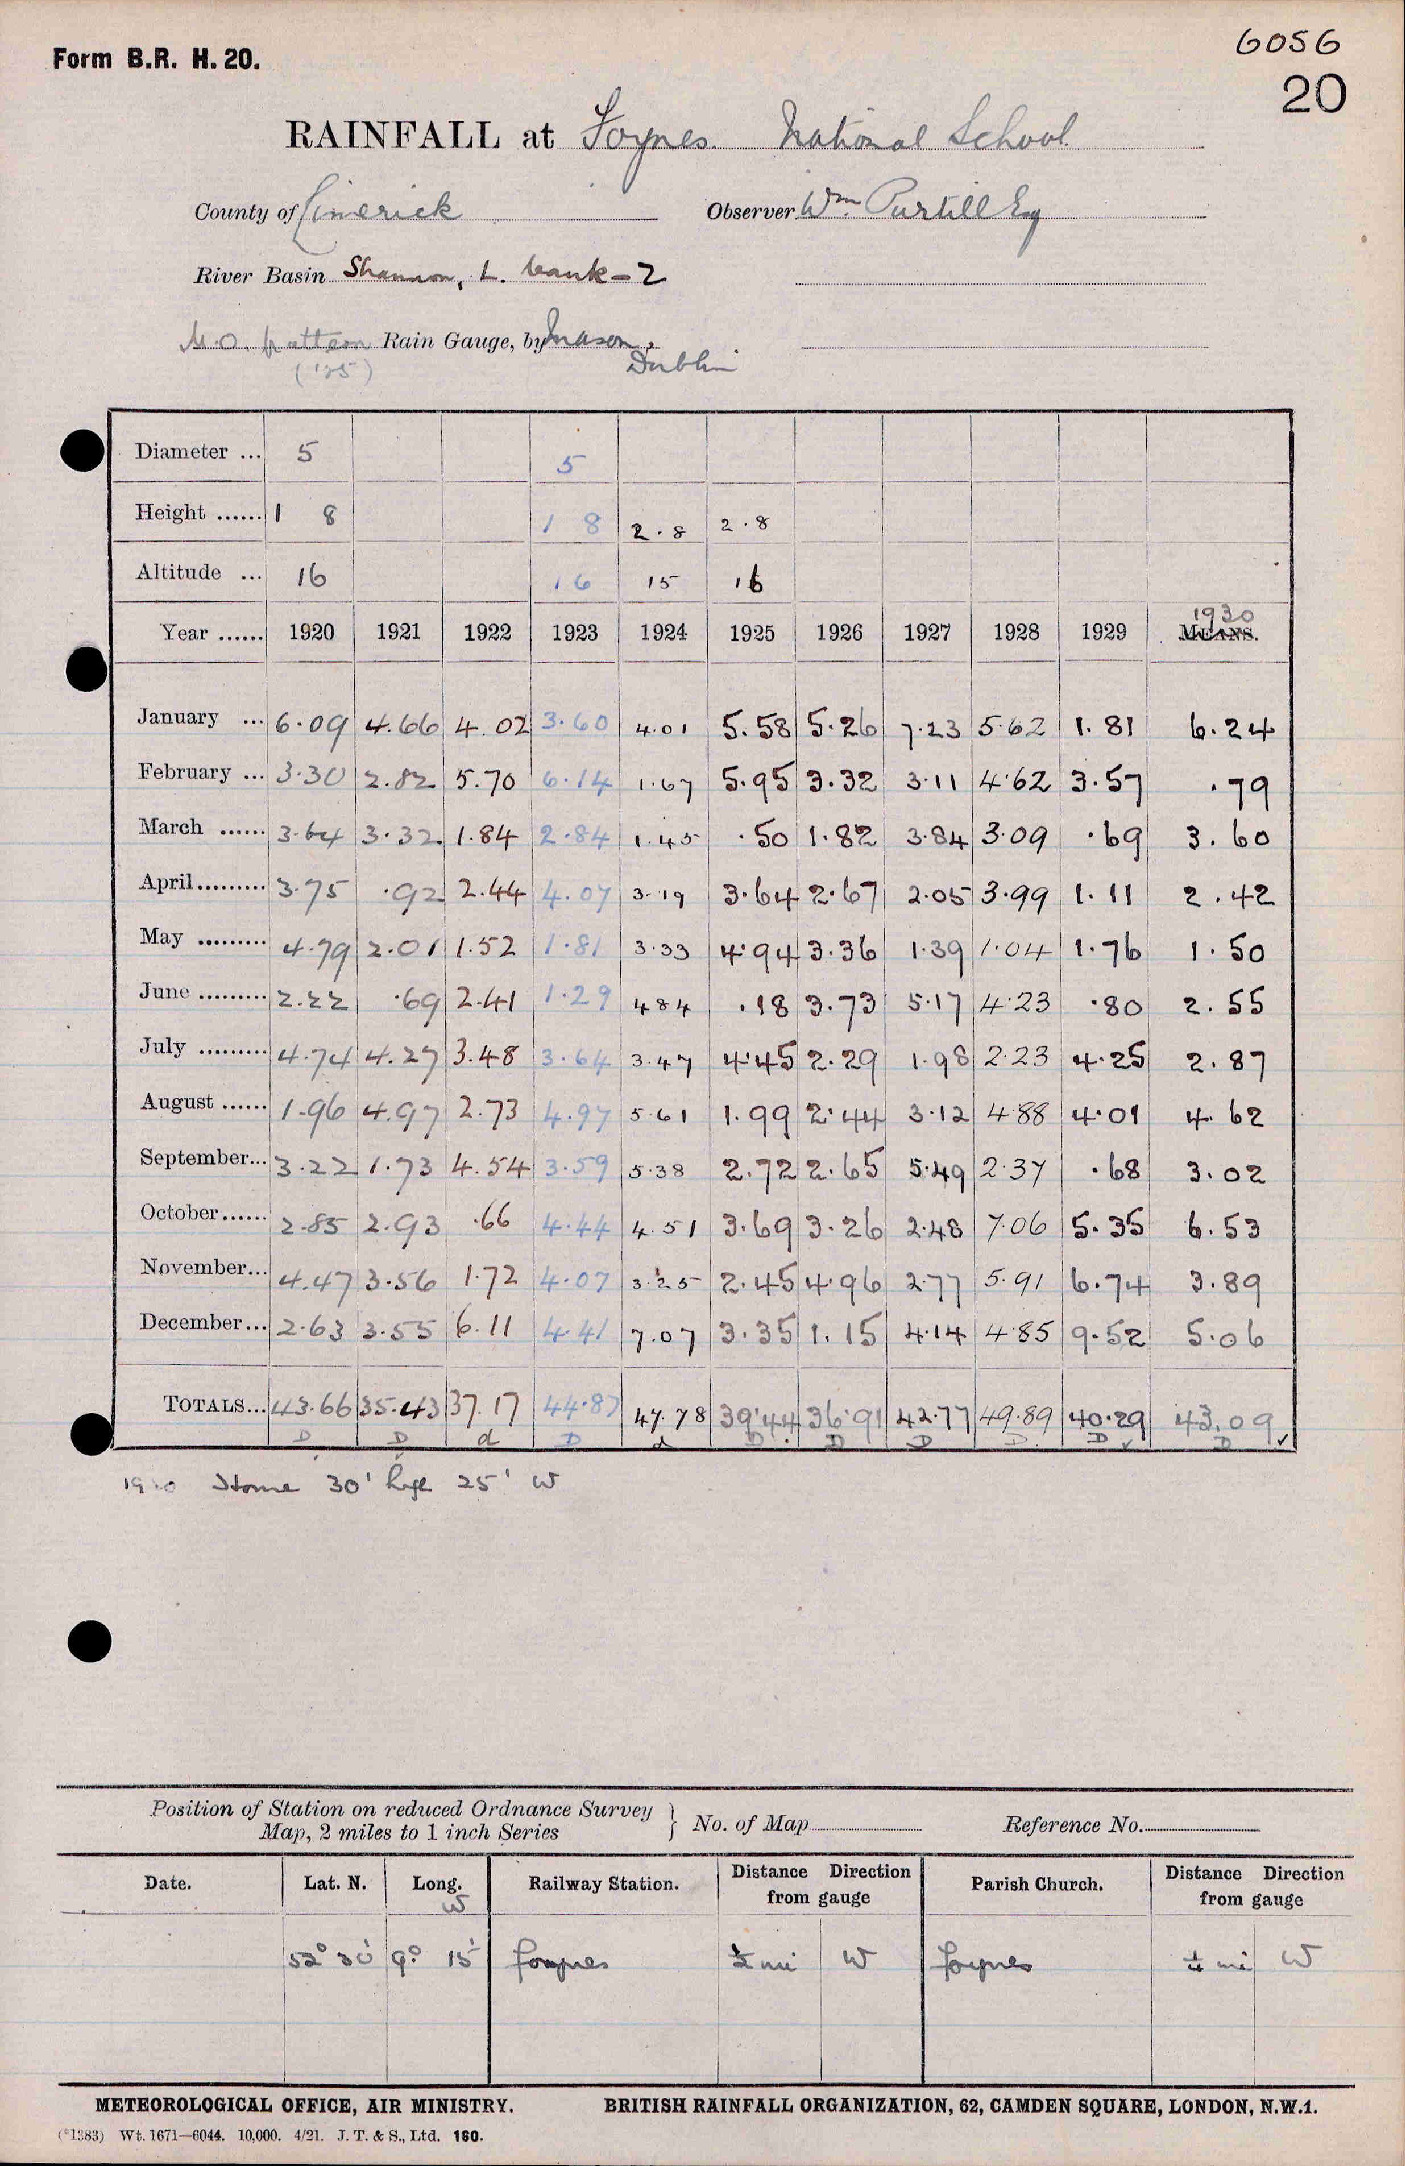 6056
Form B.R. H. 20.
20
RAINFALL at Foynes National School
County of Limerick Observer Wm. Purtill Esq
River Basin Shannon, L. bank - 2
M.O. pattern Rain Gauge, by Mason,
('25) Dublin
Diameter ... 5 5
Height ...... 1 8 1 8 2.8 2.8
Altitude ... 16 16 15 16
1930
Year ...... 1920 1921 1922 1923 1924 1925 1926 1927 1928 1929 MEANS.
January ... 6.09 4.66 4.02 3.60 4.01 5.58 5.26 7.23 5.62 1.81 6.24
February ... 3.30 2.82 5.70 6.14 1.67 5.95 3.32 3.11 4.62 3.57 .79
March ...... 3.64 3.32 1.84 2.84 1.45 .50 1.82 3.84 3.09 .69 3.60
April......... 3.75 .92 2.44 4.07 3.19 3.64 2.67 2.05 3.99 1.11 2.42
May ......... 4.79 2.01 1.52 1.81 3.33 4.94 3.36 1.39 1.04 1.76 1.50
June ......... 2.22 .69 2.41 1.29 4 84 .18 3.73 5.17 4.23 .80 2.55
July ......... 4.74 4.27 3.48 3.64 3.47 4.45 2.29 1.98 2.23 4.25 2.87
August ...... 1.96 4.97 2.73 4.97 5 61 1.99 2.44 3.12 4.88 4.01 4.62
September... 3.22 1.73 4.54 3.59 5.38 2.72 2.65 5.49 2.37 .68 3.02
October...... 2.85 2.93 .66 4.44 4.51 3.69 3.26 2.48 7.06 5.35 6.53
November... 4.47 3.56 1.72 4.07 3.25 2.45 4.96 2.77 5.91 6.74 3.89
December... 2.63 3.55 6.11 4.41 7.07 3.35 1.15 4.14 4.85 9.52 5.06
TOTALS... 43.66 35.43 37.17 44.87 47.78 39.44 36.91 42.77 49.89 40.29 43.09
D D d D d D D D D D ✓ D ✓
30' high 25' W
Position of Station on reduced Ordnance Survey
Map, 2 miles to 1 inch Series } No. of Map Reference No.
Date. Lat. N. Long. W Railway Station. Distance Direction from gauge Parish Church. Distance Direction from gauge
52° 30' 9° 15' Foynes ½ mi W Foynes ¼ mi W
METEOROLOGICAL OFFICE, AIR MINISTRY. BRITISH RAINFALL ORGANIZATION, 62, CAMDEN SQUARE, LONDON, N.W.1.
(*1383) Wt. 1671—6044. 10,000. 4/21. J. T. & S., Ltd. 160.